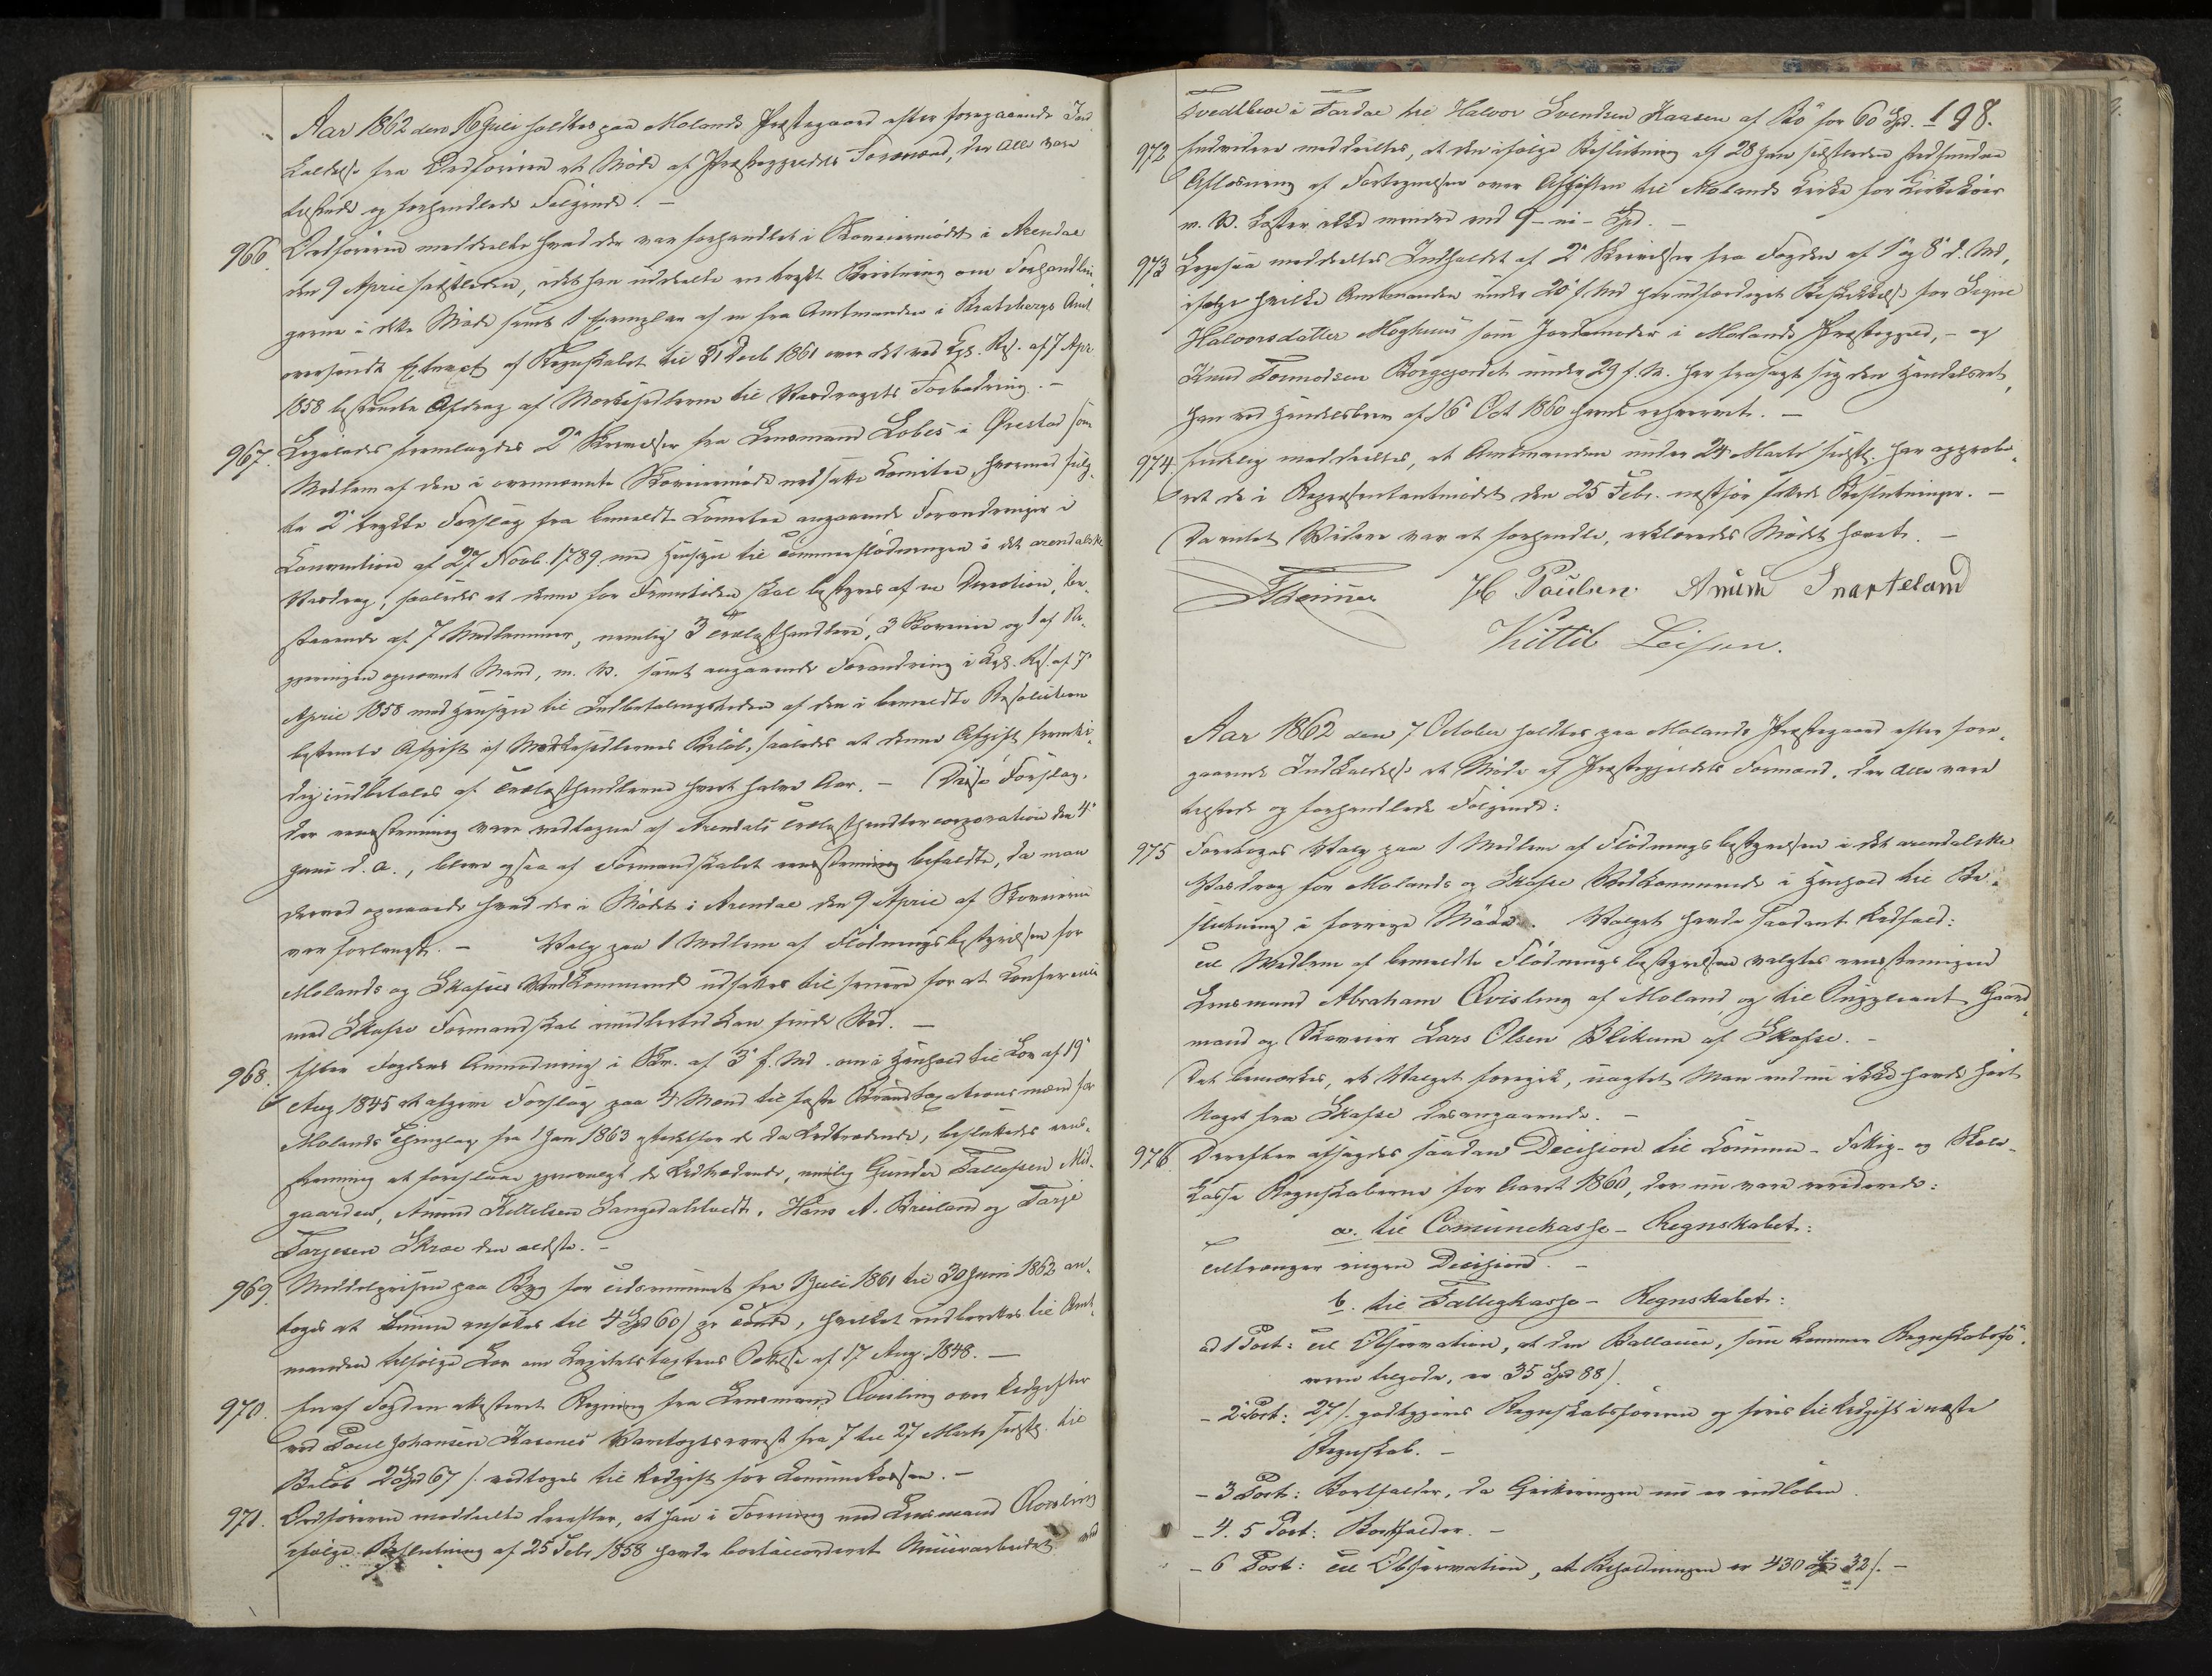 Aar 1862 den 16 Juli holdtes paa Molands Præstegaard efter foregaaende Ind
kaldelse fra Ordføreren et Møde af Præstegjeldets Formænd, der alle vare
tilstede og forhandlede Følgende: –
966. Ordføreren meddeelte hvad der var forhandlet i Skoveiermødet i Arendal
den 9 April sidstleden, idet han uddeelte en trykt Beretning om Forhandlin
gerne i dette Møde samt 1 Exemplar af en fra Amtmanden i Bratsbergs Amt
oversendt Extract af Regnskabet til 31 Decb 1861 over det ved Kgl. Res. af 7 Apr.
1858 bestemte Afdrag af Merkesedlerne til Vasdragets Forbedring. –
967. Ligeledes fremlagdes 2de Skrivelser fra Lensmand Lobes i Ørestad som
Medlem af den i ovennævnte Skoveiermøde nedsatte Comitee, hvormed fulg-
te 2de trykte Forslag fra bemeldte Comitee angaaende Forandringer i
Convention af 27 Novb. 1789 med Hensyn til Tømmerflødningen i det arendalske
Vasdrag, saaledes at denne for Fremtiden skal bestyres af en Direction, be-
staaende af 7 Medlemmer, nemlig 3 Trælasthandlere, 3 Skoveiere og 1 af Re-
gjeringen opnævnt Mand, m. V. samt angaaende Forandring i Kgl. Res. af 7de
April 1858 med Hensyn til Indbetalingstiden af den i bemeldte Resolution
bestemte Afgift af Merkesedlernes Beløb, saaledes at denne Afgift fremti-
dig indbetales af Trælasthandlerne hvert halve Aar. – Disse Forslag,
der eenstemmig vare vedtagne af Arendals Trælasthandlercorporation den 4de
Juni d. A., bleve ogsaa af Formandskabet eenstemmig bifaldte, da man
derved opnaaede hvad der i Mødet i Arendal den 9 April af Skoveierne
var forlangt. – Valg paa 1 Medlem af Flødningsbestyrelsen for
Molands og Skafse Vedkommende udsattes til senere for at Conference
med Skafse Formandskab imidlertid kan finde Sted. –
968. Efter Fogdens Anmodning i Skr. af 3de f. Md. om i Henhold til Lov af 19de
Aug 1845 at afgive Forslag paa 4 Mænd til faste Brandtaxationsmænd for
Molands Thinglag fra 1 Jan 1863 istedetfor de da Udtrædende, besluttedes een-
stemmig at foreslaae gjenvalgt de Udtrædende, nemlig Gunder Tallefsen Mid-
gaarden, Amund Kittelsen Langedalstvedt, Hans A. Breiland og Tarje
Tarjesen Skree den ældste. –
969. Middelprisen paa Byg for Tidsrummet fra 1 Juli 1861 til 30 Juni 1862 an-
toges at kunne ansættes til 4 Spd 60 s pr Tønde, hvilket indberettes til Amt-
manden tilfølge Lov om Capitelstaxtens Sættelse af 17 Aug. 1848. –
970. En af Fogden attesteret Regning fra Lensmand Qvisling over Udgifter
ved Poul Johansen Kasenes Varetægtsarrest fra 7 til 27 Marts sidstl. til
Beløb 2 Spd 67 s. vedtoges til Udgift for Communekassen. –
971. Ordføreren meddeelte derefter, at han i Forening med Lensmand Qvisling
ifølge Beslutning af 25 Febr 1858 havde bortaccorderet Muurarbeidet ved
Tvedtbroe i Fardal til Halvor Svendsen Haasen af Bö for 60 Spd. 198.
972 Endvidere meddeeltes, at den ifølge Beslutning af 28 Jan sidstleden stedfundne
Afløsning af Fortegnelsen over Afgiften til Molands Kirke for Kirkekøer
m. V. koster ikke mindre end 9 – ni – Spd. –
973 Ligesaa meddeeltes Indholdet af 2de Skrivelser fra Fogden af 1ste og 8de d. Md,
ifølge hvilke Amtmanden under 20de f. Md har udfærdiget Beskikkelse for Signe
Halvorsdatter Moghuus som Jordemoder i Molands Præstegjeld, – og
Knud Tormodsen Borgejordet under 29 f. M. har frasagt sig den Handelsret,
han ved Handelsbrev af 16de Oct 1860 havde erhvervet. –
974. Endelig meddeeltes, at Amtmanden under 24 Marts sidstl. har approbe-
ret de i Repræsentantmødet den 25 Febr. næstfør fattede Beslutninger. –
Da intet Videre var at forhandle, erklæredes Mødet hævet. –
H Poulsen. Amun Snarteland
Kittil Leifsen.
Aar 1862 den 7 October holdtes paa Molands Præstegaard efter fore-
gaaende Indkaldelse et Møde af Præstegjeldets Formænd, der alle vare
tilstede og forhandlede Følgende:
975 Foretoges Valg paa 1 Medlem af Flødningsbestyrelsen i det arendalske
Vasdrag for Molands og Skafse Vedkommende i Henhold til Be-
slutning i forrige Møde. Valget havde saadant Udfald:
Til Medlem af bemeldte Flødningsbestyrelse valgtes eenstemmigen
Lensmand Abraham Qvisling af Moland, og til Suppleant Gaard-
mand og Skoveier Lars Olsen Blikum af Skafse. –
Det bemærkes, at Valget foregik, uagtet Man endnu ikke havde hørt
Noget fra Skafse desangaaende. –
976. Derefter afsagdes saadan Decision til Commune- Fattig- og Skole-
kasse Regnskaberne for Aaret 1860, der nu vare reviderede:
a. til Communekasse – Regnskabet:
Tiltrænger ingen Decision. –
b. til Fattigkasse – Regnskabet:
ad 1 Post: Til Observation, at den Ballance, som kommer Regnskabsfø-
reren tilgode, er 35 Spd 88 s.
– 2 Post: 27 s. godtgjøres Regnskabsføreren og føres til Udgift i næste
Regnskab. –
– 3 Post: Bortfalder, da Qvitteringen nu er indløben.
– 4. 5 Post: Bortfalder. –
– 6 Post: Til Observation, at Beholdningen er 430 Spd 32 s. –